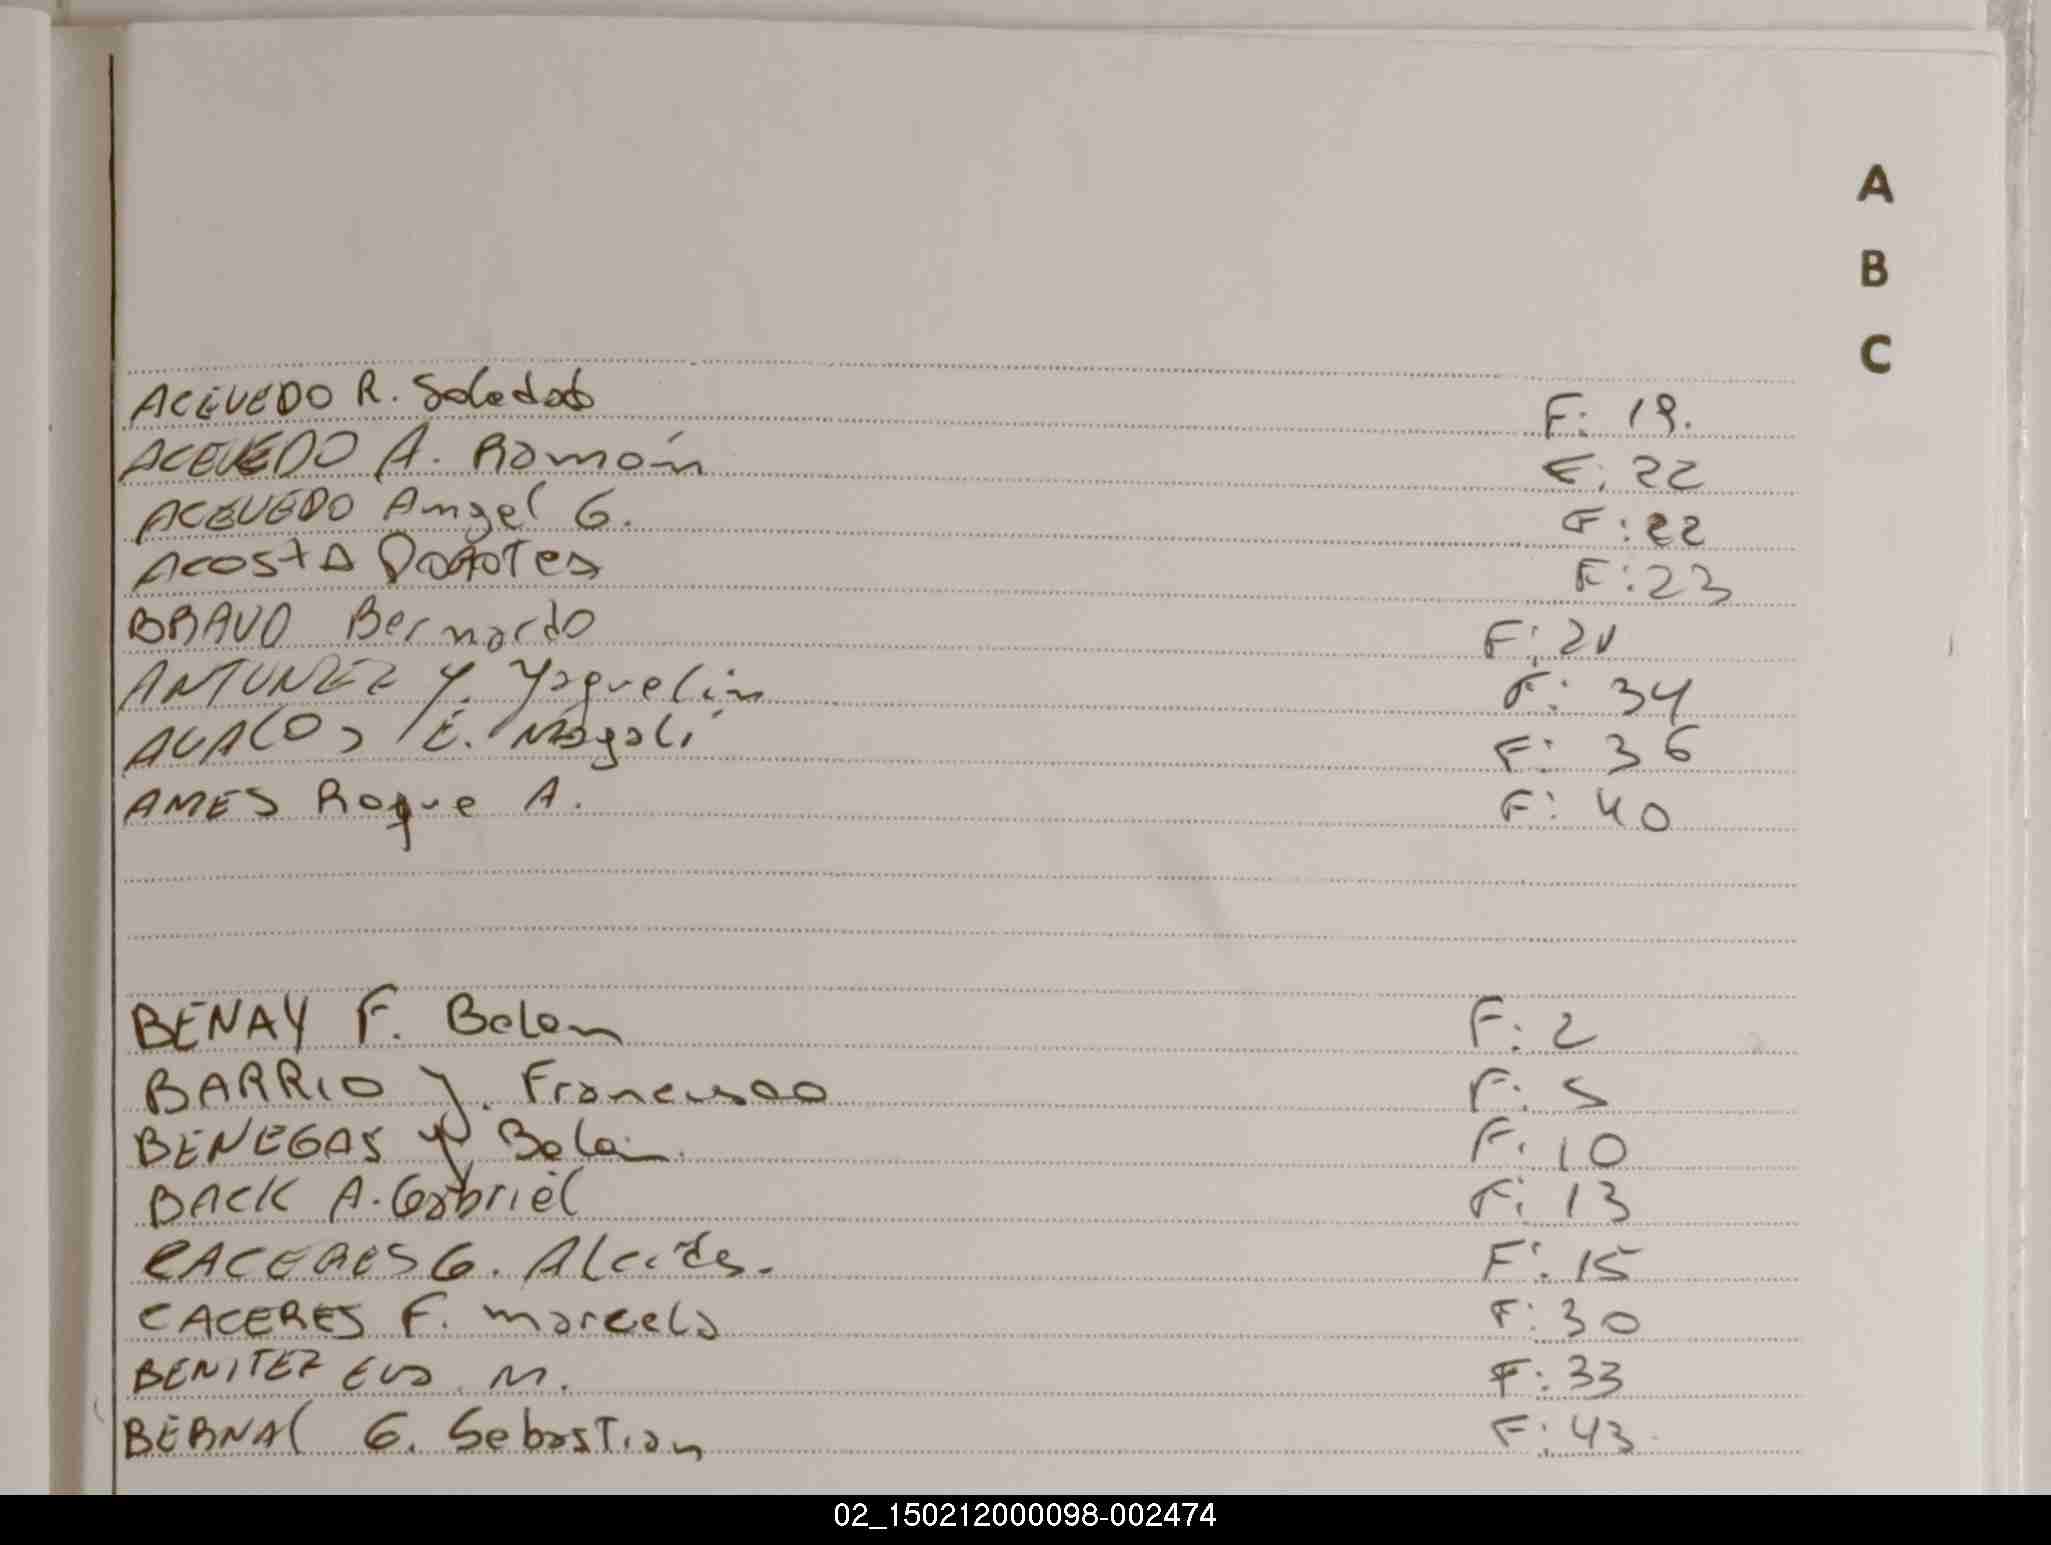 A
B
C
ACEVEDO R. Soledad F: 19.
ACEVEDO A. Ramón F: 22
ACEVEDO Angel G. F: 22
ACOSTA F: 23
BRAVO Bernardo F: 21
ANTUNEZ Y. Yaquelin F: 34
AVALOS E. Magali F: 36
AMES Roque A. F: 40
BENAY F. Belen F: 2
BARRIO Y. Francisco F: 5
BENEGAS Y Belen. F: 10
BACK A. Gabriel F: 13
CACERES G. Alcides. F: 15
CACERES F. Marcela F: 30
BENITEZ Eva M. F: 33
BERNAL G. Sebastian F: 43
02_150212000098-002474